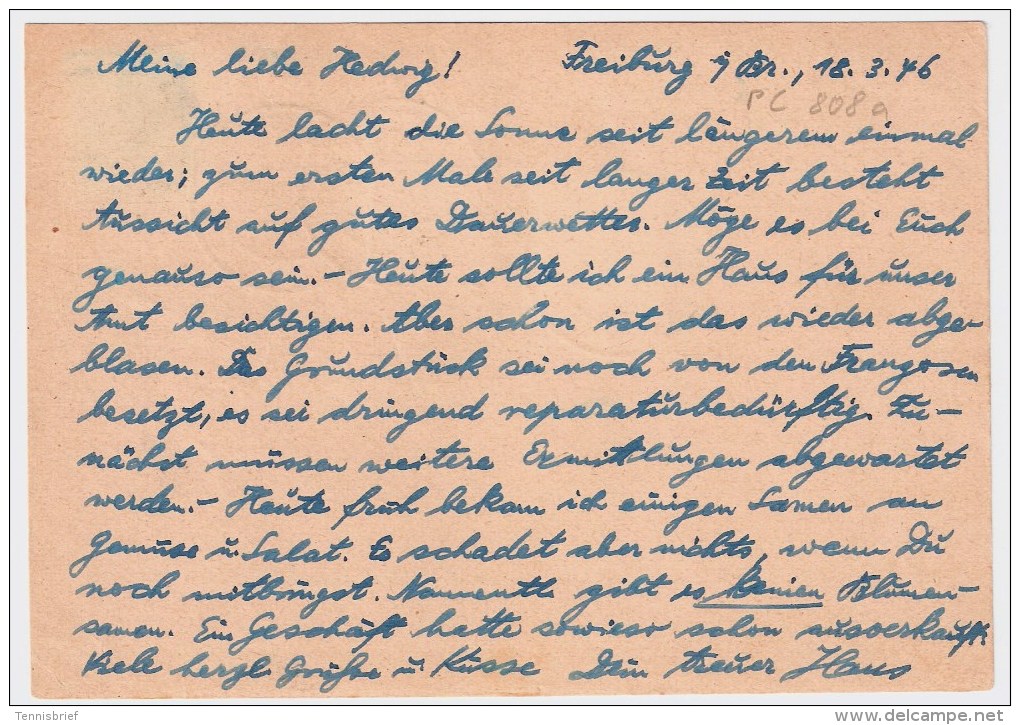 Meine liebe Hedwig! Freiburg i/Br., 18.3.46
PC 808a
Heute lacht die Sonne seit längerem einmal
wieder; zum ersten Male seit langer Zeit besteht
Aussicht auf gutes Dauerwetter. Möge es bei Euch
genauso sein. – Heute sollte ich ein Haus für unser
Amt besichtigen. Aber schon ist das wieder abge-
blasen. Das Grundstück sei noch von den Franzosen
besetzt, es sei dringend reparaturbedürftig. Zu-
nächst müssen weitere Ermittlungen abgewartet
werden. – Heute früh bekam ich einigen Samen an
Gemüse u. Salat. Es schadet aber nichts, wenn Du
noch mitbringst. Namentl. gibt es keinen Blumen-
samen. Ein Geschäft hatte sowieso schon ausverkauft.
Viele herzl. Grüße u. Küsse Dein treuer Hans
Tennisbrief
delcampe.net